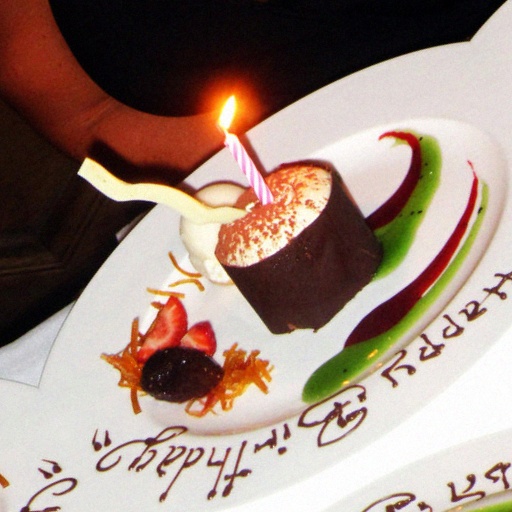 "Happy Birthday"